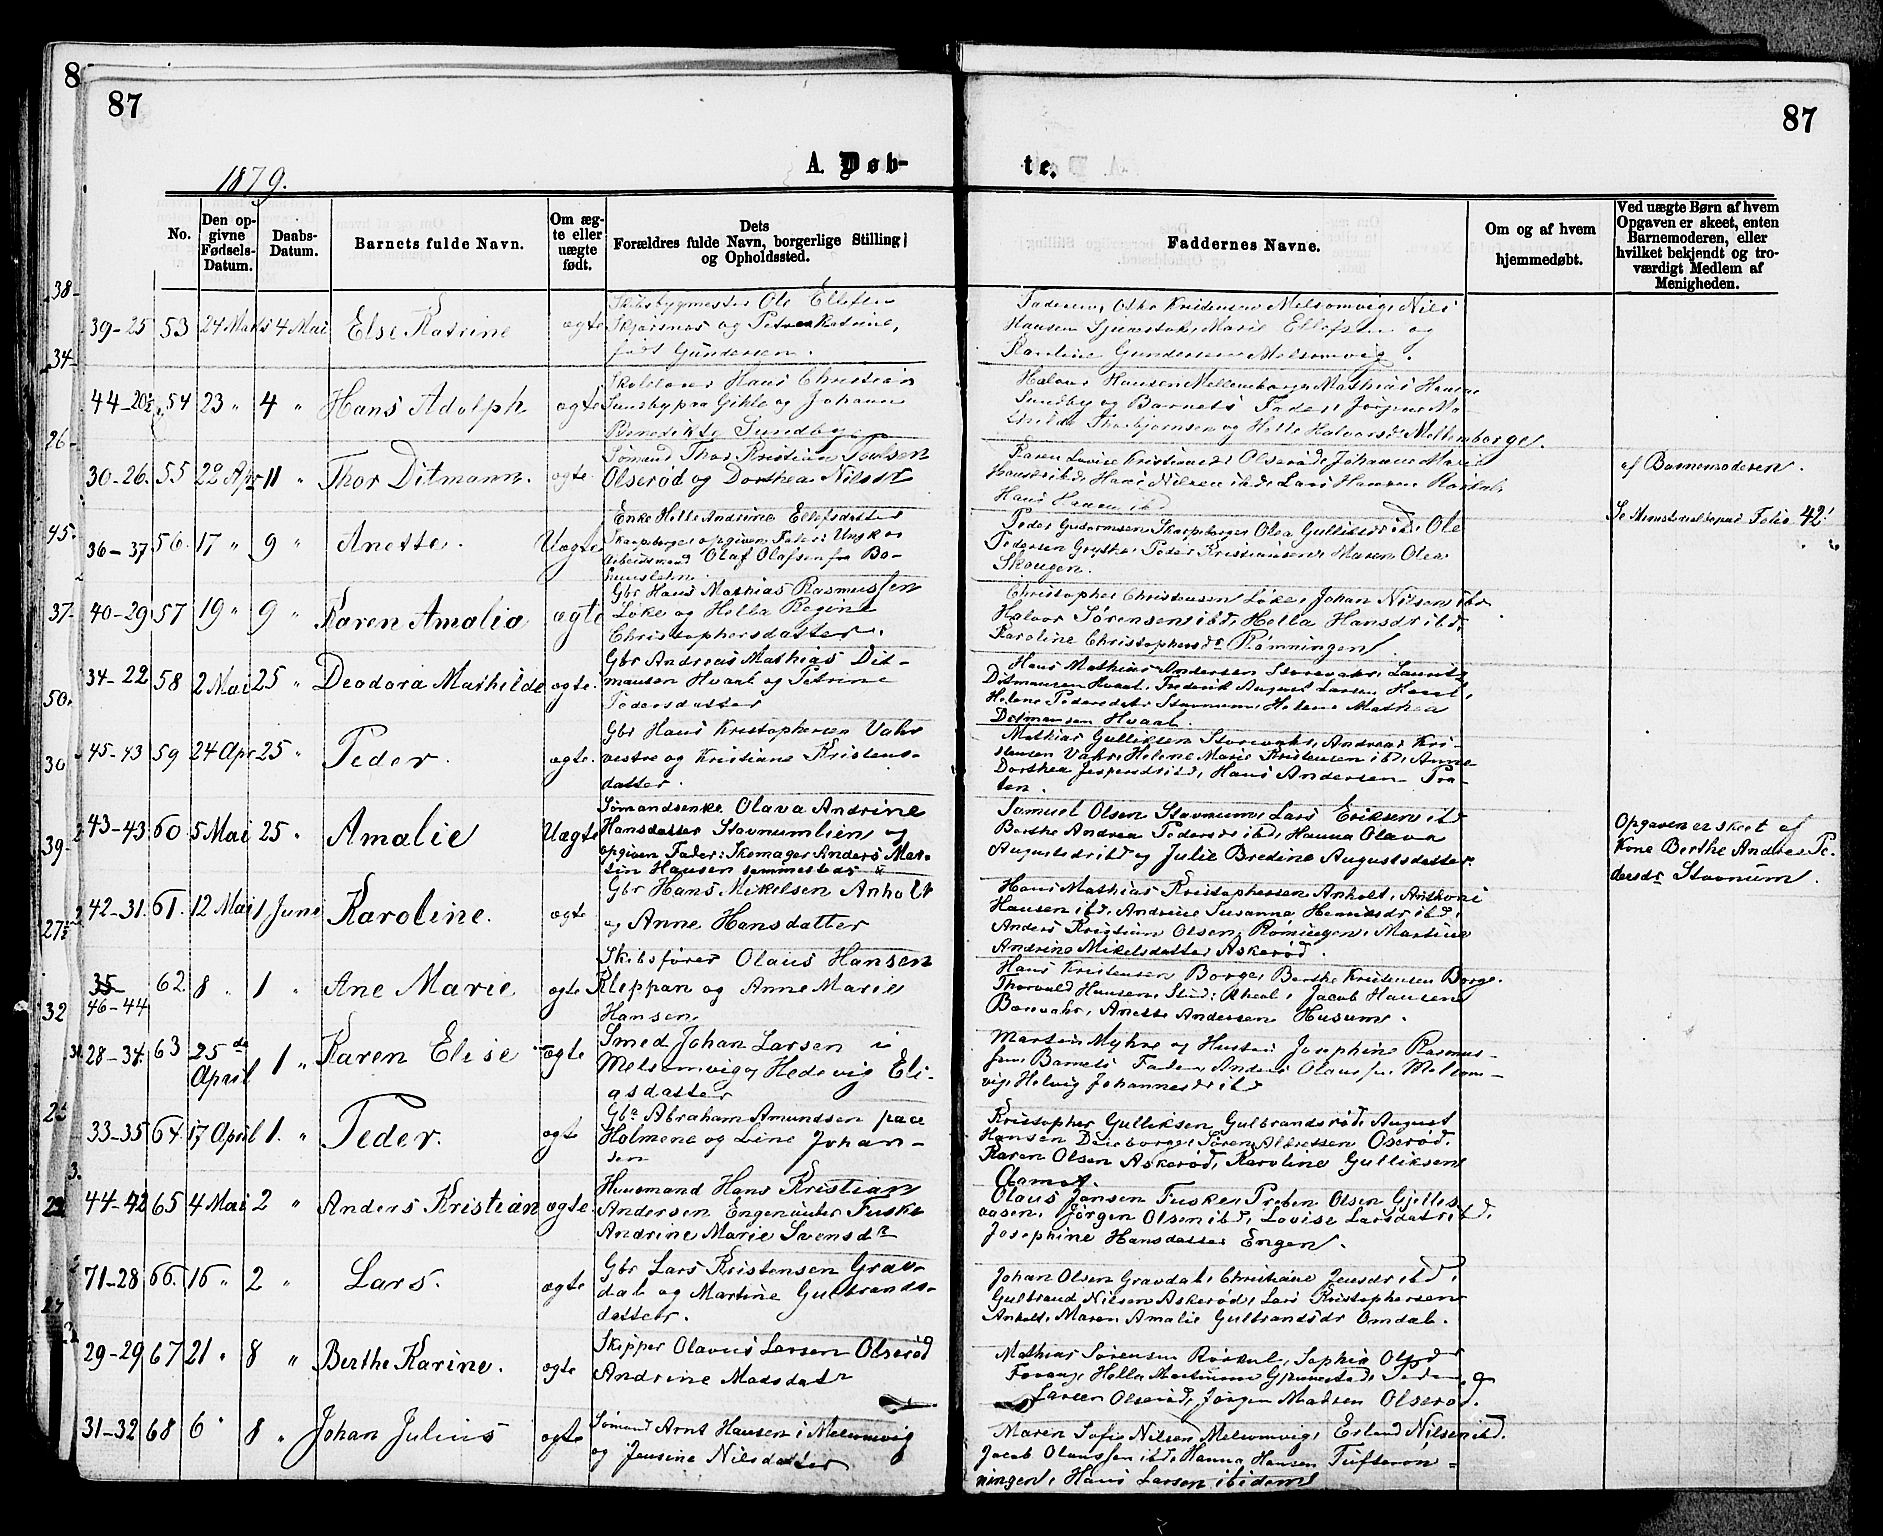 87
87
8
A. Døb-
te.
1879.
No.
Den op-
givne
Fødsels-
Datum.
Daabs-
Datum.
Barnets fulde Navn.
Om æg-
te eller
uægte
født.
Dets
Forældres fulde Navn, borgerlige Stilling
og Opholdssted.
Faddernes Navne.
Om og af hvem
hjemmedøbt.
Ved uægte Børn af hvem
Opgaven er skeet, enten
Barnemoderen, eller
hvilket bekjendt og tro-
værdigt Medlem af
Menigheden.
39-25 53 24 Marts 4 Mai Else Katrine ægte
Skibsbygmester Ole Ellefsen
Skjærsnes og Petrea Katrine,
født Gundersen.
Hausen Marie Ellefsen og
Karoline Gundersen Melsomvig.
44-20½ 54 23 " 4 " Hans Adolph ægte
Skolelærer Hans Christian
Sundby og Johanne
Benedikte Sundbye
Halvor Hansen Mellemborge, Mathias Hansen
Sundby og Barnets Fader, Jørgine Ma-
thilde Thorbjørnsen og Helle Halvorsdr Mellemborge.
30-26. 55 22 Apr 11 " Thor Ditmann. ægte
Sømand Thor Kristian Poulsen
Olserød og Dorthea Nilsdr
Karen Lovise Kristiansdr Olserød, Johanne Marie
Hansdr ibd, Hans Nilsen ibd, Lars Hansen
Hans Hansen ibd
af Barnemoderen.
36-37 56. 17 " 9 " Anette. Uægte
Enke Helle Andrine Ellefsdatter
Skarpeborge opgiven Fader: Ungkar
Arbeidsmand Olaf Olafsen fra Bo-
huuslehn.
Peder Gudormsen Skarpeborge, Olea Gulliksdr ibd, Ole
Pedersen Peder Kristiansen, Maren Olea
Skougen.
Se Ministerialbogens Folio 42!
40-29 57 19 " 9 " Karen Amalia ægte
Gbr Hans Mathias Rasmussen
Løke og Hella Regine
Christophersdatter.
Christopher Christensen Løke, Johan Nilsen ibd
Halvor Sørensen ibd, Hella Hansdr ibd,
Karoline Christophersdr Rømningen.
34-22 58 2 Mai 25 " Deodora Mathilde ægte.
Gbr Andreas Mathias Dit-
mansen Hvaal og Petrine
Pedersdatter
Hans Mathias Andersen Storevahr, Lauritz
Ditmansen Hvaal, Frederik August Larsen
Helene Pedersdatr Stavnum, Helene Mathea
Ditmansen Hvaal.
45-43 59 24 Apr 25 " Peder. ægte.
Gbr Hans Kristophersen Vahr
vestre og Kristiane Kristens-
datter.
Mathias Gulliksen Storevahr, Andreas Kri-
stensen Vahr, Helene Marie Kristensen ibd, Anne
Dorthea Jespersdr ibd, Hans Andersen Tra-
ten.
43-43 60 5 Mai 25 " Amalie Uægte
Sømandsenke Olava Andrine
Hansdatter Stavnumlien og
opgiven Fader: Skomager Anders Mar-
tin Hansen sammesteds
Samuel Olsen Stavnum, Lars Eriksen ibd
Berthe Andrea Pedersdr ibd, Hanna Olava
Augustsdr ibd og Julie Bredine Augustsdatter
Opgaven er skeet af
Kone Berthe Andrea Pe-
dersdr Stavnum.
42-31. 61. 12 Mai 1 June Karoline. ægte
Gbr Hans Mikelsen Anholt
og Anne Hansdatter
Hans Mathias Kristophersen Anholt, Anthoni
Hansen ibd, Andrine Susanne Henriksdr ibd,
Anders Kristian Olsen Rømingen, Martine
Andrine Mikelsdatter Askerød.
35
46-44 62 8 " 1 " Ane Marie ægte
Skibsfører Olaus Hansen
Kleppan og Anne Marie
Hansen
Hans Kristensen Borge, Berthe Kristensen Borge.
Thorvald Hansen, Stud: theol:, Jacob Hansen
Bonvahr, Anette Andersen Husum.
28-34 63 25de April 1 " Karen Elise ægte
Smed Johan Larsen i
Melsomvig, Hedevig Eli-
asdatter
Martin Myhre og Hustru Josephine Rasmus-
sen, Barnets Fader, Anders Olaussen Melsom-
vig, Helvig Johannesdr ibd
33-35 64. 17 April 1. " Peder. ægte
Gbr Abraham Amundsen paa
Holmene og Line Johan-
sen
Kristopher Gulliksen Gulbrandsrød, August
Hansen Søren Albretsen Oserød,
Karen Olsen Askerød, Karoline Gulliksen
44-42 65 4 Mai 2 " Anders Kristian ægte
Huusmand Hans Kristian
Andersen Engen under Fuske
Andrine Marie Svensdr
Olaus Jansen Fuske, Preben Olsen Gjelles-
aasen, Jørgen Olsen ibd, Lovise Larsdatr ibd,
Josephine Hansdatter Engen.
71-28 66. 16 " 2 " Lars. ægte
Gbr Lars Kristensen Grav-
dal og Martine Gulbrands-
datter.
Johan Olsen Gravdal, Christiane Jensdr ibd,
Gulbrand Nilsen Askerød, Lars Kristophersen
Anholt, Maren Amalie Gulbrandsdr Omdal.
29-29 67 21 " 8 " Berthe Karine. ægte
Skipper Olavus Larsen Olserød
Andrine Madsdatr
Mathias Sørensen Rørkol, Sophie Olsdr
Hella Martinsen Gjennestad, Peder
Larsen Olserød, Jørgen Madsen Olserød.
31-32 68 6 " 8 " Johan Julius ægte
Sømand Arnt Hansen i Melsomvig
og Jensine Nilsdatter
Maren Sofie Nilsen Melsomvig, Erland Nilsen ibd.
Jacob Olaussen ibd, Hanna Hansen Tufterøn-
ningen, Hans Larsen ibidem